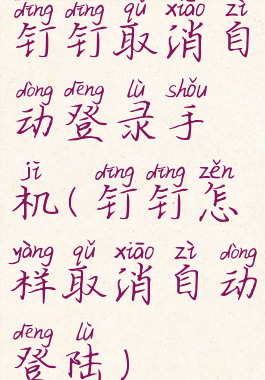 dīng dīng qǔ xiāo zì
钉钉取消自
dòng dēng lù shǒu
动登录手
jī dīng dīng zěn
机(钉钉怎
yàng qǔ xiāo zì dòng
样取消自动
dēng lù
登陆)